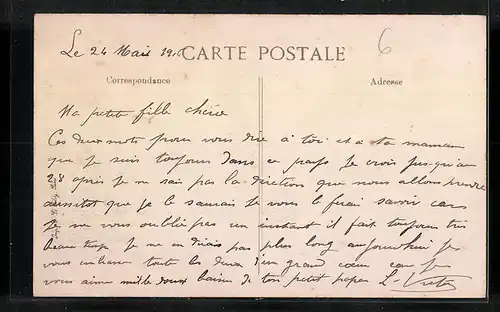 Le 24 Mars 191
CARTE POSTALE
6
Correspondance
Adresse
Ma petite fille chérie
Ces deux mots pour vous dire à toi et à ta maman
que je suis toujours dans ce pays je crois jusqu'au
28 après je ne sais pas la direction que nous allons prendre
aussitot que je le saurais je vous le ferai savoir cars
je ne vous oublie pas un instant il fait toujours très
beau temps je ne en dirais pas plus long aujourdhui je
vous embrasse toute les deux d'un grand cœur car je
vous aime mille doux baisers de ton petit papa